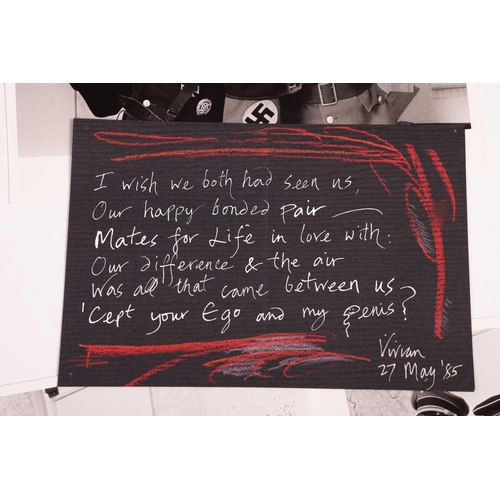 I wish we both had seen us,
Our happy bonded pair —
Mates for Life in love with:
Our difference & the air
was all that came between us
'Cept your Ego and my penis?
?
Vivian
27 May '85